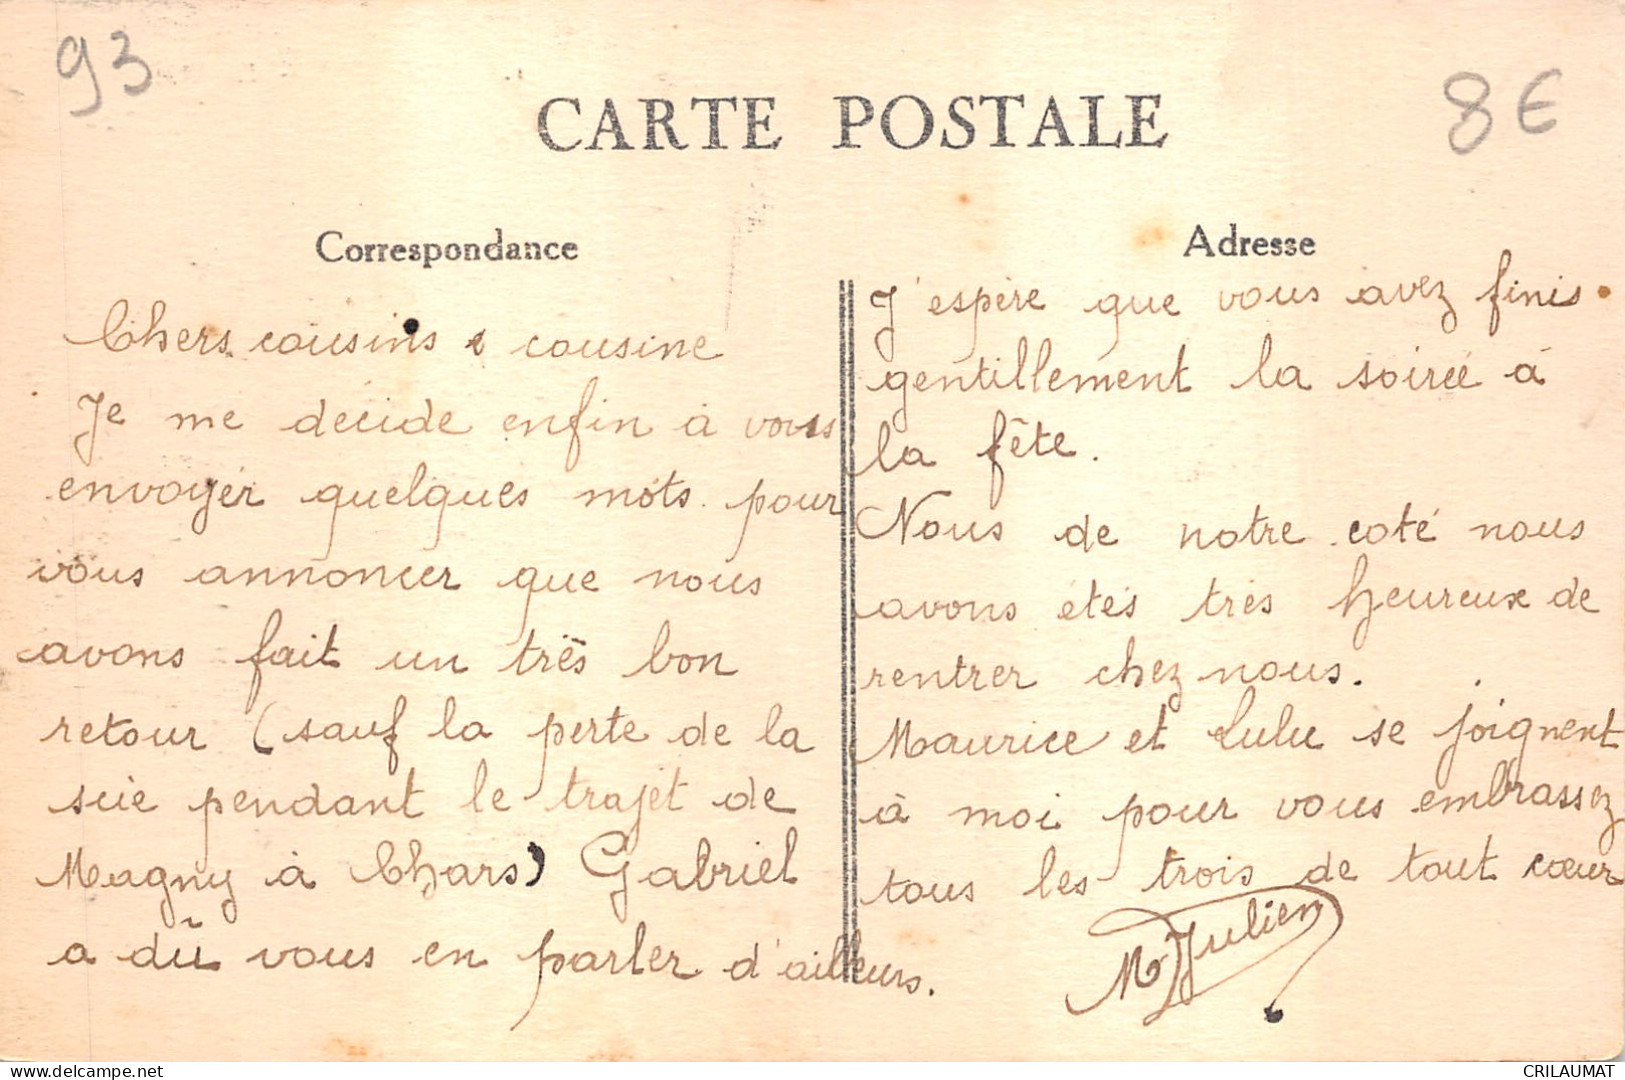 93
8€
CARTE POSTALE
Correspondance
Chers cousins & cousine
Je me décide enfin à vous
envoyer quelques mots pour
vous annoncer que nous
avons fait un très bon
retour (sauf la perte de la
scie pendant le trajet de
Magny à Chars) Gabriel
a dû vous en parler d'ailleurs.
Adresse
J'espère que vous avez finis
gentillement la soirée à
la fête.
Nous de notre coté nous
avons étés très heureux de
rentrer chez nous.
Maurice et Lulu se joignent
à moi pour vous embrassez
tous les trois de tout cœur
M Julien
delcampe.net
CRILAUMAT